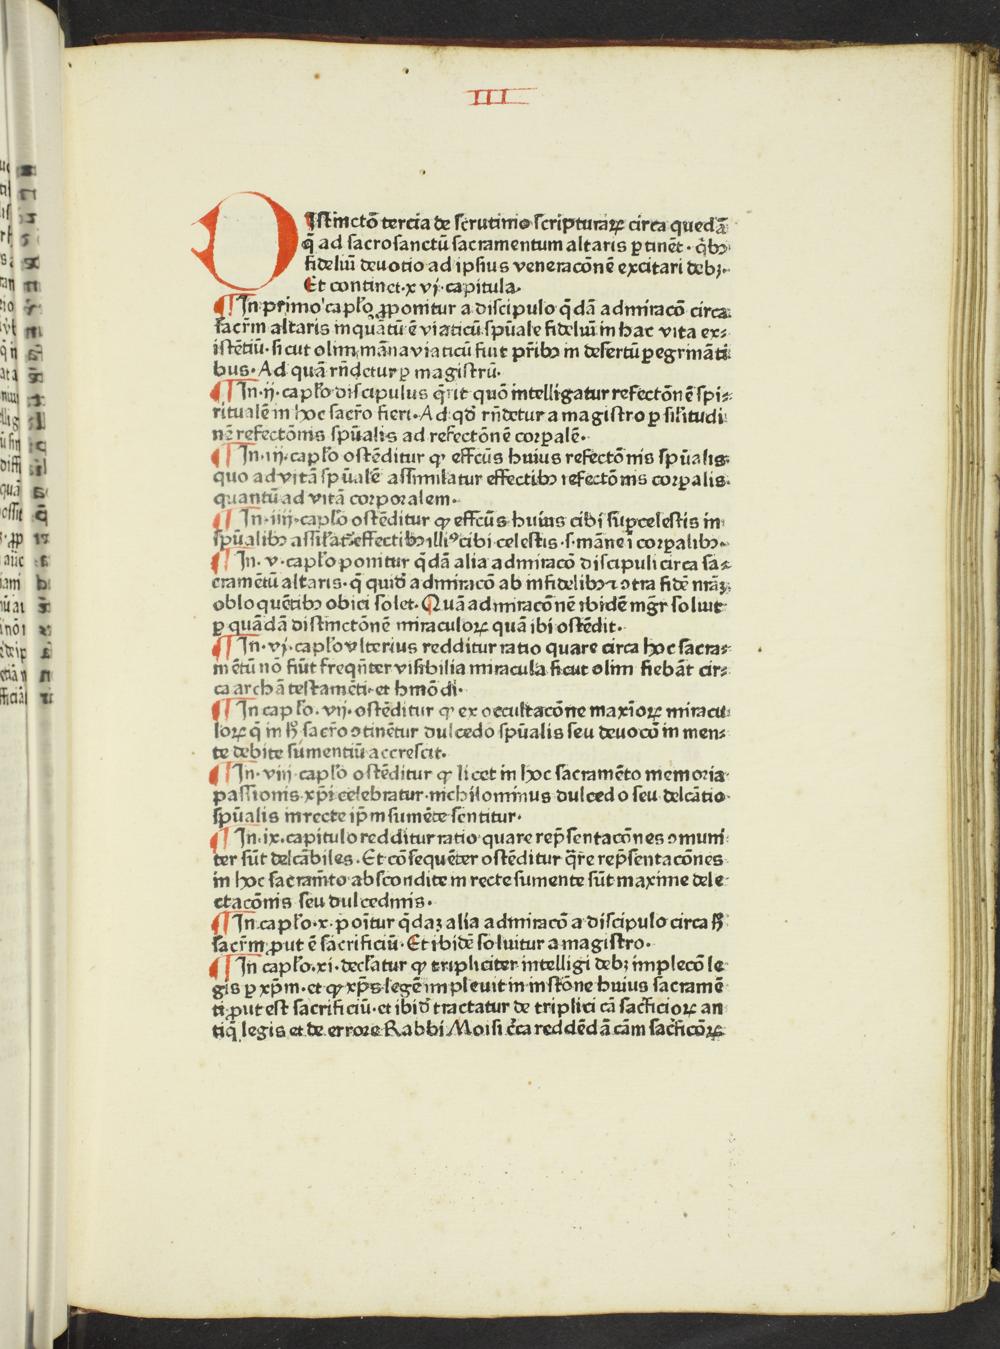 III
DIstinctō tercia de scrutinio scripturaꝝ circa quedā
q̄ ad sacrosanctū sacramentum altaris ꝑtinēt · q̇bꝫ
fideliū deuotio ad ipsius veneracōnē excitari debꝫ·
Et continet·xvj·capitula·
¶ In primo capl̄o ꝓponitur a discipulo q̄dā admiracō circa
sacrm̄ altaris inquātū ē viaticū spūale fideliū in hac vita ex⸗
istētiū· sicut olim māna viaticū fuit pr̄ibꝫ in desertū ꝑegrināti
bus· Ad quā rn̄detur ꝑ magistrū·
¶ In·ij·capl̄o discipulus q̄rit quō intelligatur refectōnē spi⸗
ritualē in hoc sacr̄o fieri· Ad qd̄ rn̄detur a magistro ꝑ sil̄itudi
nē refectōnis spūalis ad refectōnē corꝑalē·
¶ In·iij·capl̄o ostēditur ꝙ effc̄us huius refectōnis spūalis
quo ad vitā spūalē assimilatur effectibꝫ refectōnis corꝑalis·
quantū ad vitā corporalem·
¶ In·iiij·capl̄o ostēditur ꝙ effc̄us huius cibi suꝑcelestis in
spūalibꝫ assil̄at᷑ effectibꝫ illiꝰ cibi celestis·s·māne ī corꝑalibꝫ·
¶ In·v·capl̄o ponitur q̄dā alia admiracō discipuli circa sa⸗
cramētū altaris· q̄ quid̄ admiracō ab infidelibꝫ ⁊ ꝯtra fidē nrāꝫ
obloquētibꝫ obici solet· Quā admiracōnē ibidē mḡr soluit
ꝑ quādā distinctōnē miraculoꝝ quā ibi ostēdit·
¶ In·vj·capl̄o vlterius redditur ratio quare circa hoc sacra⸗
mētū nō fiūt freqn̄ter visibilia miracula sicut olim fiebāt cir⸗
ca archā testamēti· et hmōdi·
¶ In capl̄o·vij·ostēditur ꝙ ex occultacōne maxīoꝝ miracu
loꝝ q̄ in h̄ sacr̄o ꝯtinētur dulcedo spūalis seu deuocō in men⸗
te debite sumentiū accrescit·
¶ In·viij capl̄o ostēditur ꝙ licet in hoc sacramēto memoria
passionis xp̄i celebratur·nichilominus dulcedo seu delcātio
spūalis in recte ip̄m sumēte sentitur·
¶ In·ix·capitulo redditur ratio quare rep̄sentacōnes ꝯmuni
ter sūt delcābiles·Et cōsequēter ostēditur q̄re rep̄sentacōnes
in hoc sacram̄to abscondite in recte sumente sūt maxime dele
ctacōnis seu dulcedinis·
¶ In capl̄o·x·poītur q̄daꝫ alia admiracō a discipulo circa h̄
sacr̄m ꝓut ē sacrificiū·Et ibidē soluitur a magistro·
¶ In capl̄o·xi·decl̄atur ꝙ tripliciter intelligi debꝫ implecō le
gis ꝑ xp̄m·et ꝙ xp̄s legē impleuit in instōne huius sacramē
ti ꝓut est sacrificiū·et ibid̄ tractatur de triplici cā sac̄ficioꝝ an
tiq̄ legis et de errore Rabbi Moisi c̄ca reddēdā cām sac̄ficōꝝ